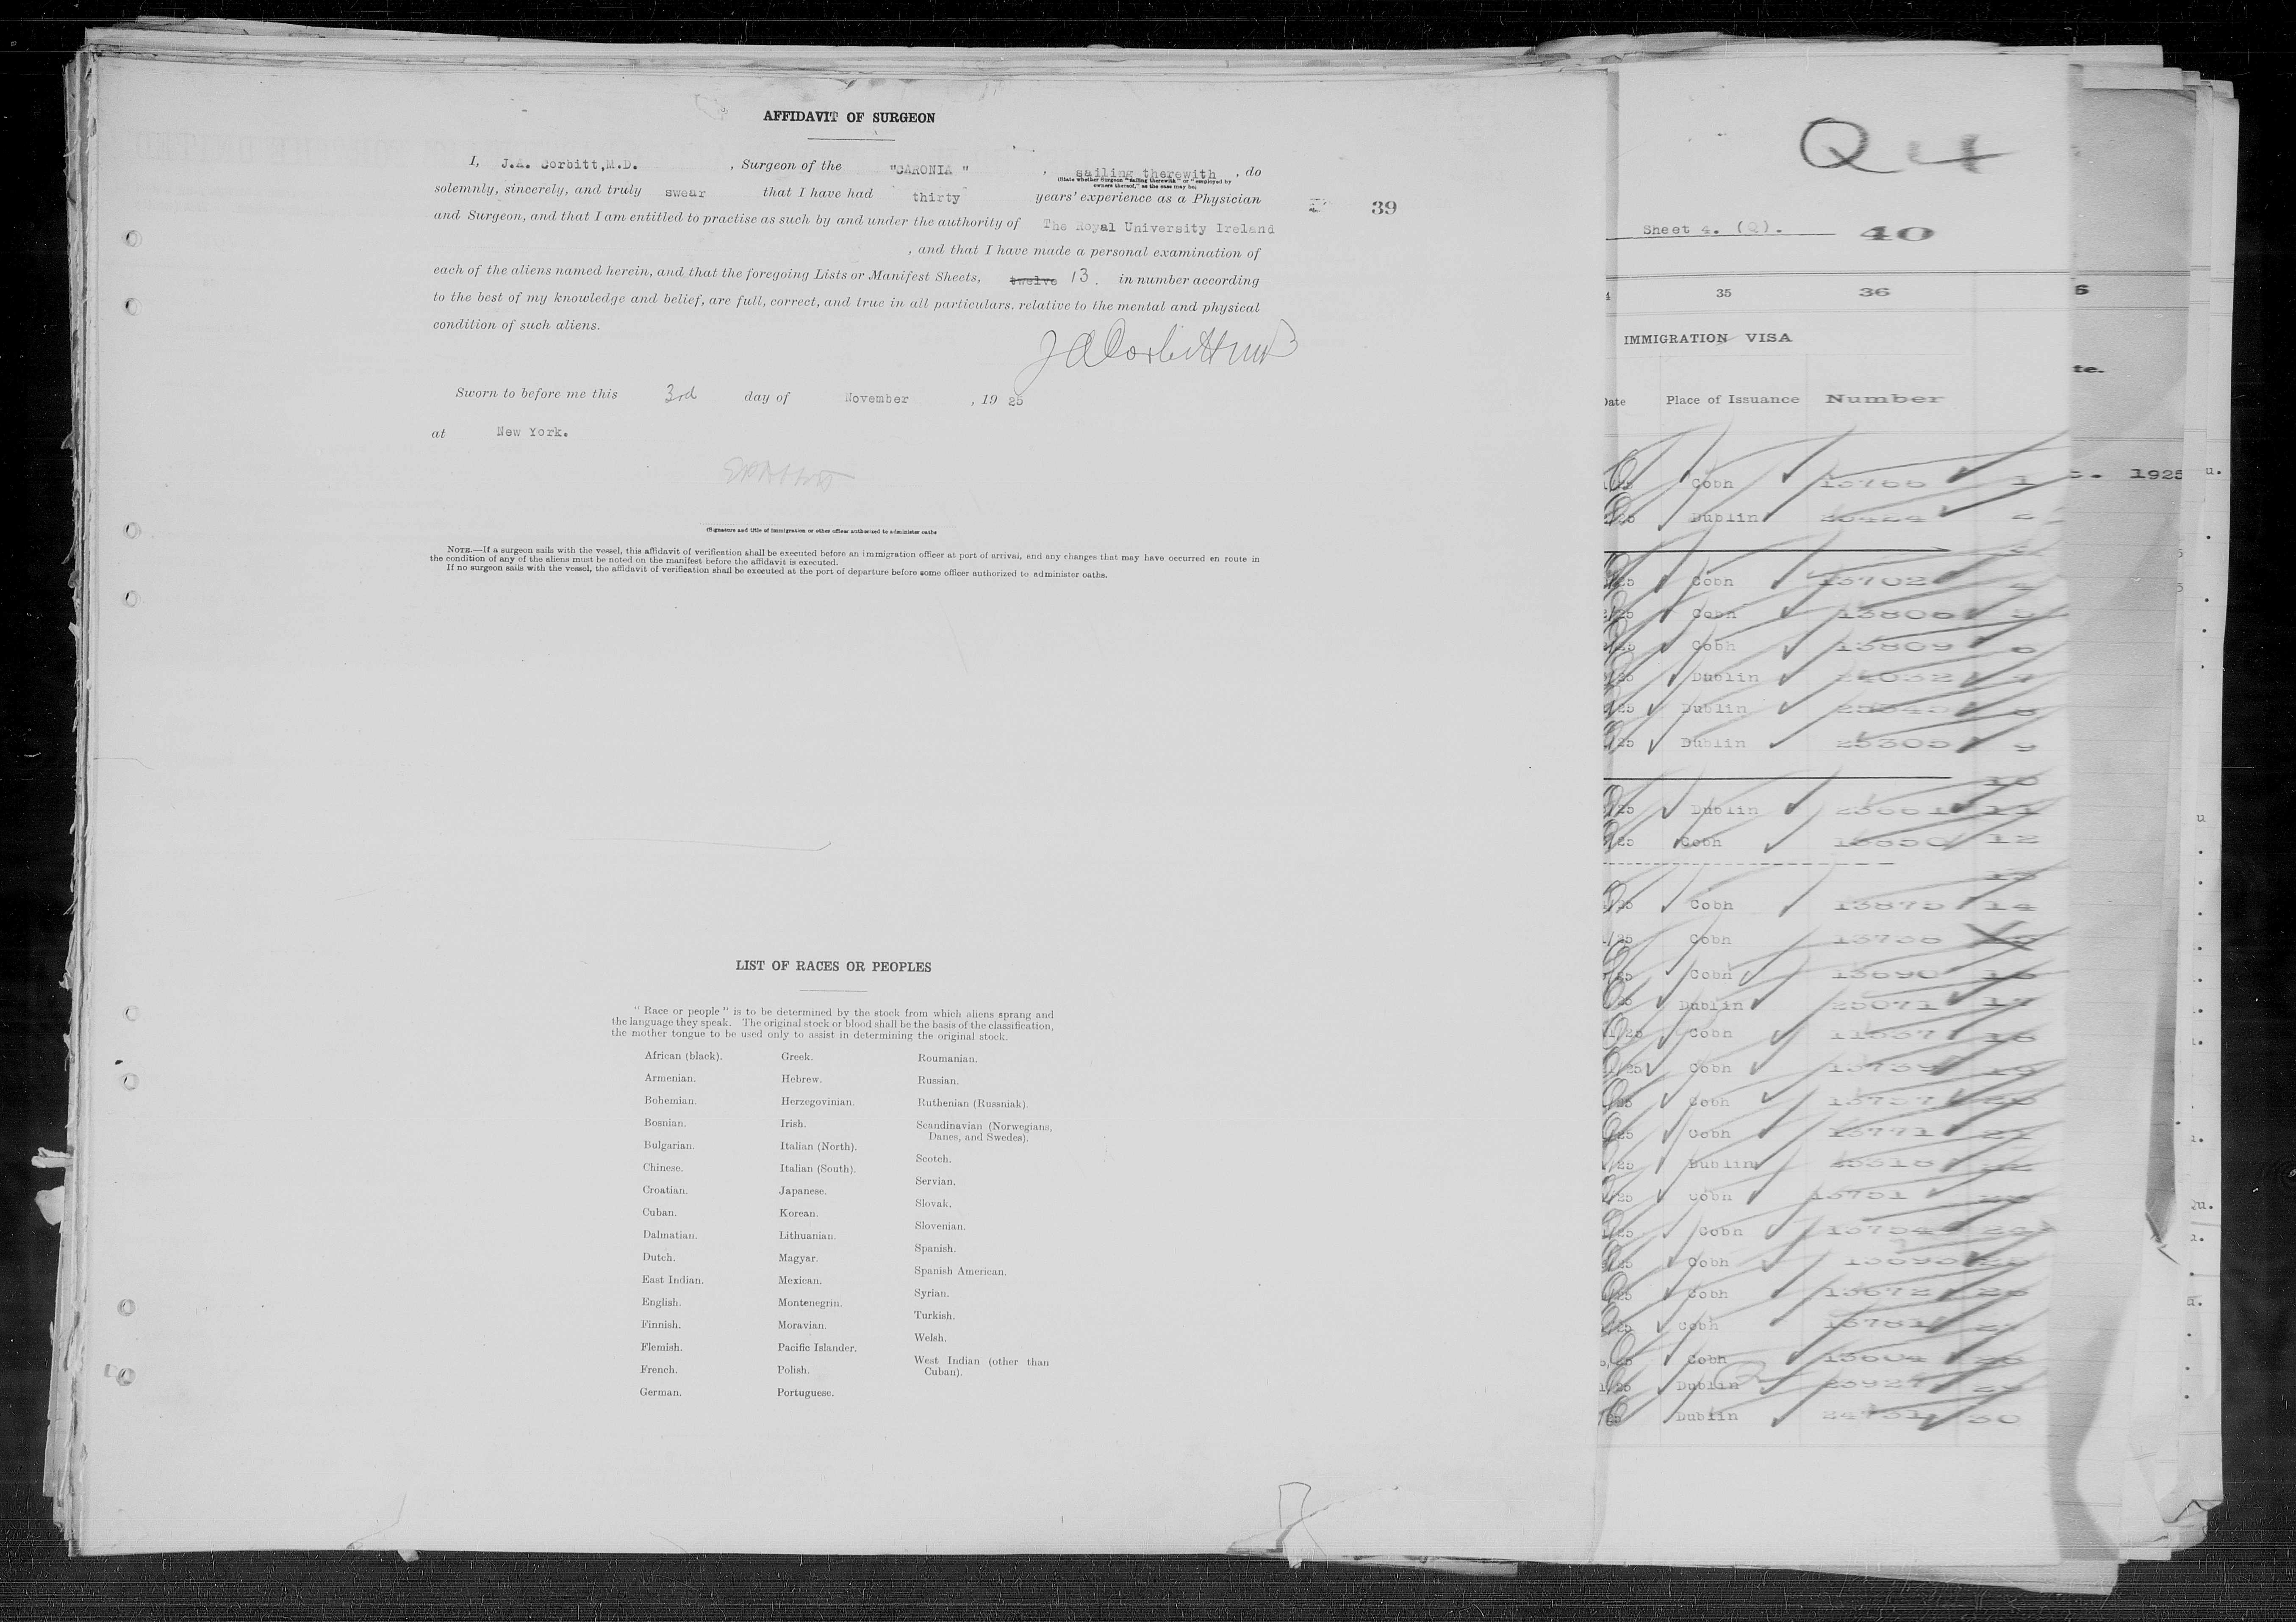 AFFIDAVIT OF SURGEON
I, J.A. Corbitt,M.D. , Surgeon of the "CARONIA " , sailing therewith , do
(State whether Surgeon "sailing therewith" or "employed by
owners thereof," as the case may be)
solemnly, sincerely, and truly swear that I have had thirty years' experience as a Physician
39
and Surgeon, and that I am entitled to practise as such by and under the authority of The Royal University Ireland
, and that I have made a personal examination of
each of the aliens named herein, and that the foregoing Lists or Manifest Sheets, twelve 13. in number according
to the best of my knowledge and belief, are full, correct, and true in all particulars. relative to the mental and physical
condition of such aliens.
J A Corbitt MD
Sworn to before me this 3rd day of November , 19 25
at New York.
(Signature and title of immigration or other officer authorized to administer oaths
NOTE.—If a surgeon sails with the vessel, this affidavit of verification shall be executed before an immigration officer at port of arrival, and any changes that may have occurred en route in
the condition of any of the aliens must be noted on the manifest before the affidavit is executed.
If no surgeon sails with the vessel, the affidavit of verification shall be executed at the port of departure before some officer authorized to administer oaths.
LIST OF RACES OR PEOPLES
" Race or people " is to be determined by the stock from which aliens sprang and
the language they speak. The original stock or blood shall be the basis of the classification,
the mother tongue to be used only to assist in determining the original stock.
African (black).
Armenian.
Bohemian.
Bosnian.
Bulgarian.
Chinese.
Croatian.
Cuban.
Dalmatian.
Dutch.
East Indian.
English.
Finnish.
Flemish.
French.
German.
Greek.
Hebrew.
Herzegovinian.
Irish.
Italian (North).
Italian (South).
Japanese.
Korean.
Lithuanian.
Magyar.
Mexican.
Montenegrin.
Moravian.
Pacific Islander.
Polish.
Portuguese.
Roumanian.
Russian.
Ruthenian (Russniak).
Scandinavian (Norwegians,
Danes, and Swedes).
Scotch.
Servian.
Slovak.
Slovenian.
Spanish.
Spanish American.
Syrian.
Turkish.
Welsh.
West Indian (other than
Cuban).
Q 4
Sheet 4. (Q). 40
35 36
IMMIGRATION VISA
Date Place of Issuance Number
Cobn 1
Dublin 2
Cobn 13702 4
Cobn 13806 5
Cobh 13809 6
Dublin 24032 7
Dublin 8
Dublin 25305 9
10
Dublin 11
Cobh 12
13
Cobn 13875 14
Cobn 13738
Cobh 13690 16
Dublin 25071 17
Cobn 18
Cobh 13739 19
Cobh 13737 20
Cobh 13771 21
Dublin 22
Cobh 13751 23
Cobh 13754 24
Cobh 25
Cobh 13672 26
Cobh 13781 27
Cobh 13604 28
Dublin 23927 29
Dublin 24731 30
1925